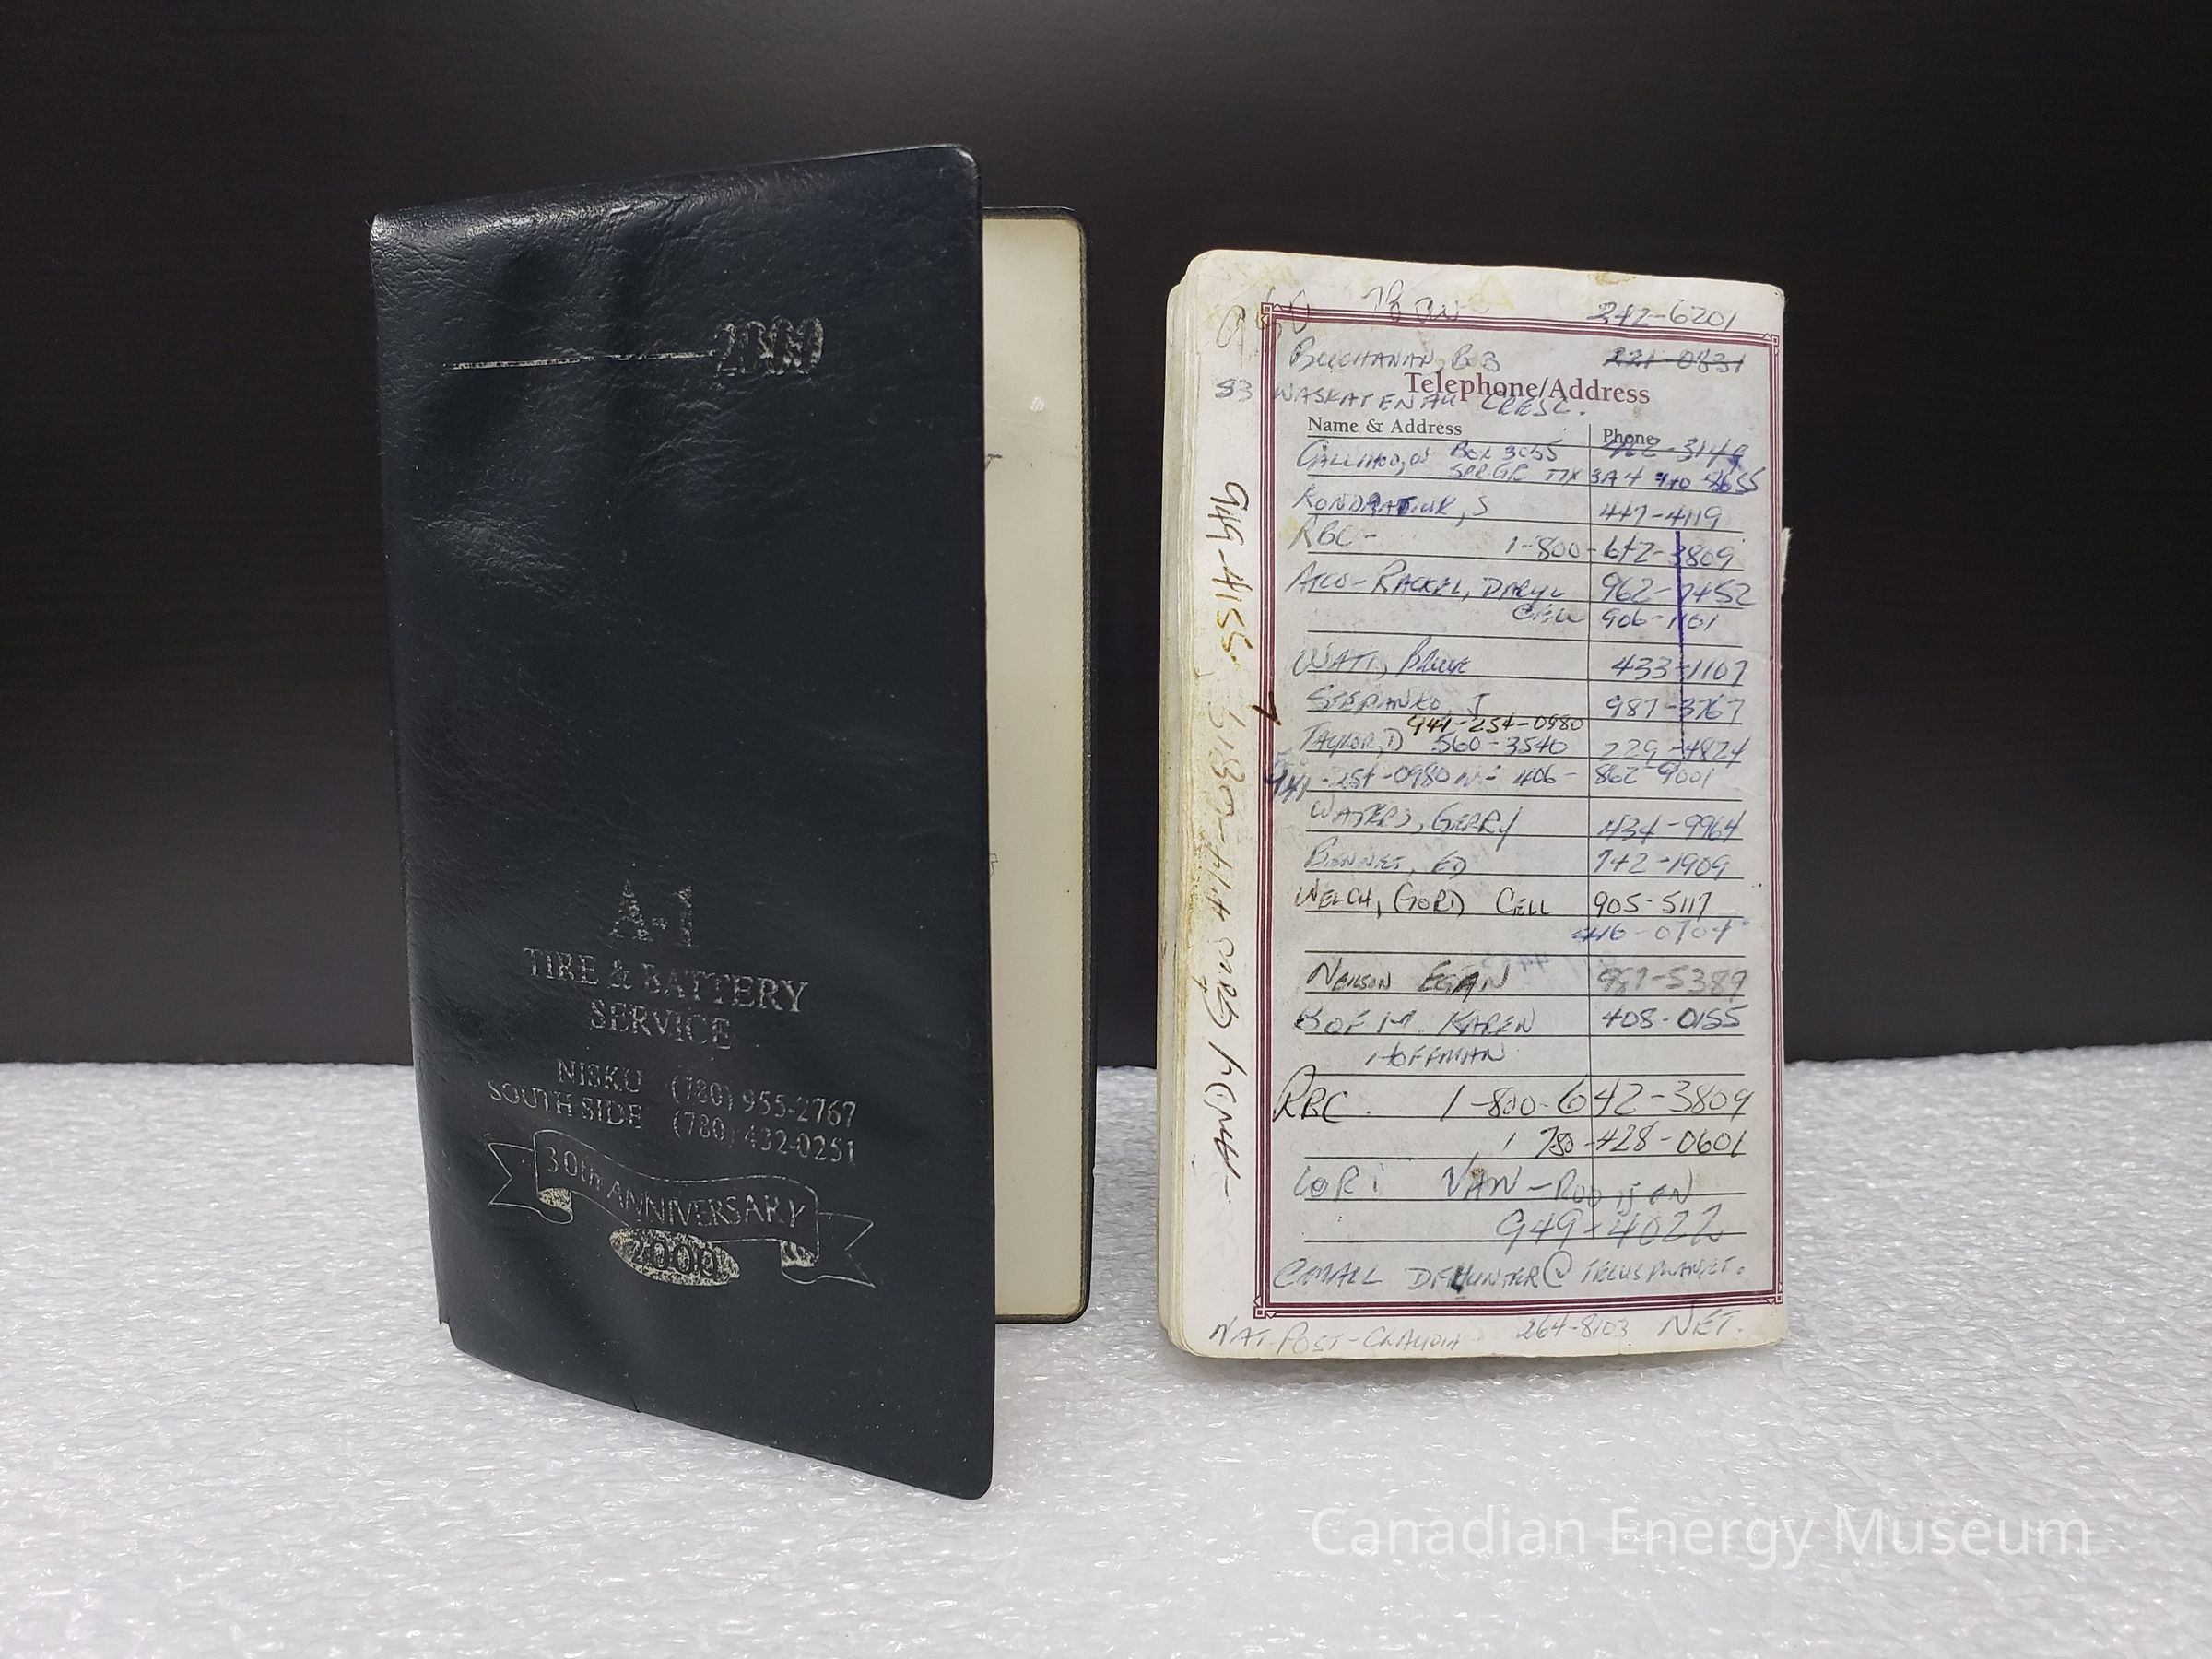 2000
A-1
TIRE & BATTERY
SERVICE
NISKU (780) 955-2767
SOUTH SIDE (780) 432-0251
30th ANNIVERSARY
2000
242-6201
BUCHANAN, BOB 221-0831
53 WASKATENAU CRESC.
Telephone/Address
Name & Address Phone
BOX 3055
SPR GR T7X 3A4
447-4119
RBC - 1-800-642-3809
ATCO - RACKEL, DARYL 962-7452
CELL 906-1101
WATT, BRUCE 433-1107
987-3767
941-254-0980
TAYLOR, D 560-3540 229-4824
941-254-0980 406-862-9001
WATERS, GERRY 434-9964
BENNET, ED 742-1909
WELCH, GORD CELL 905-5117
416-0704
NEILSON EGAN 987-5389
B OF M. KAREN 408-0155
HOFFMAN
RBC. 1-800-642-3809
1 780-428-0601
LORI VAN-ROOIJEN
949-4022
EMAIL DFHUNTER@TELUSPLANET.
NET.
NAT. POST - CLAUDIA 264-8103
949-4155
Canadian Energy Museum